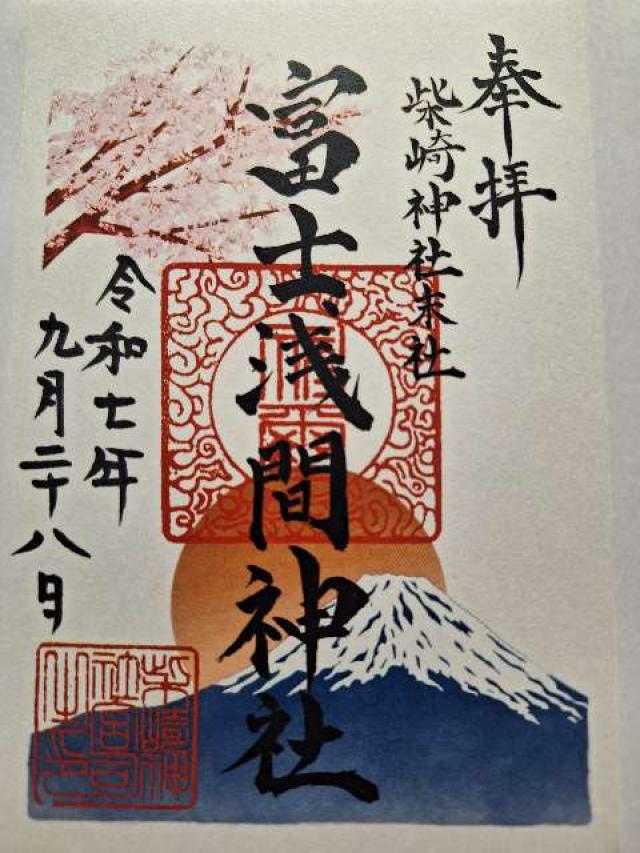 奉拝
柴崎神社末社
富士浅間神社
令和七年
九月二十八日